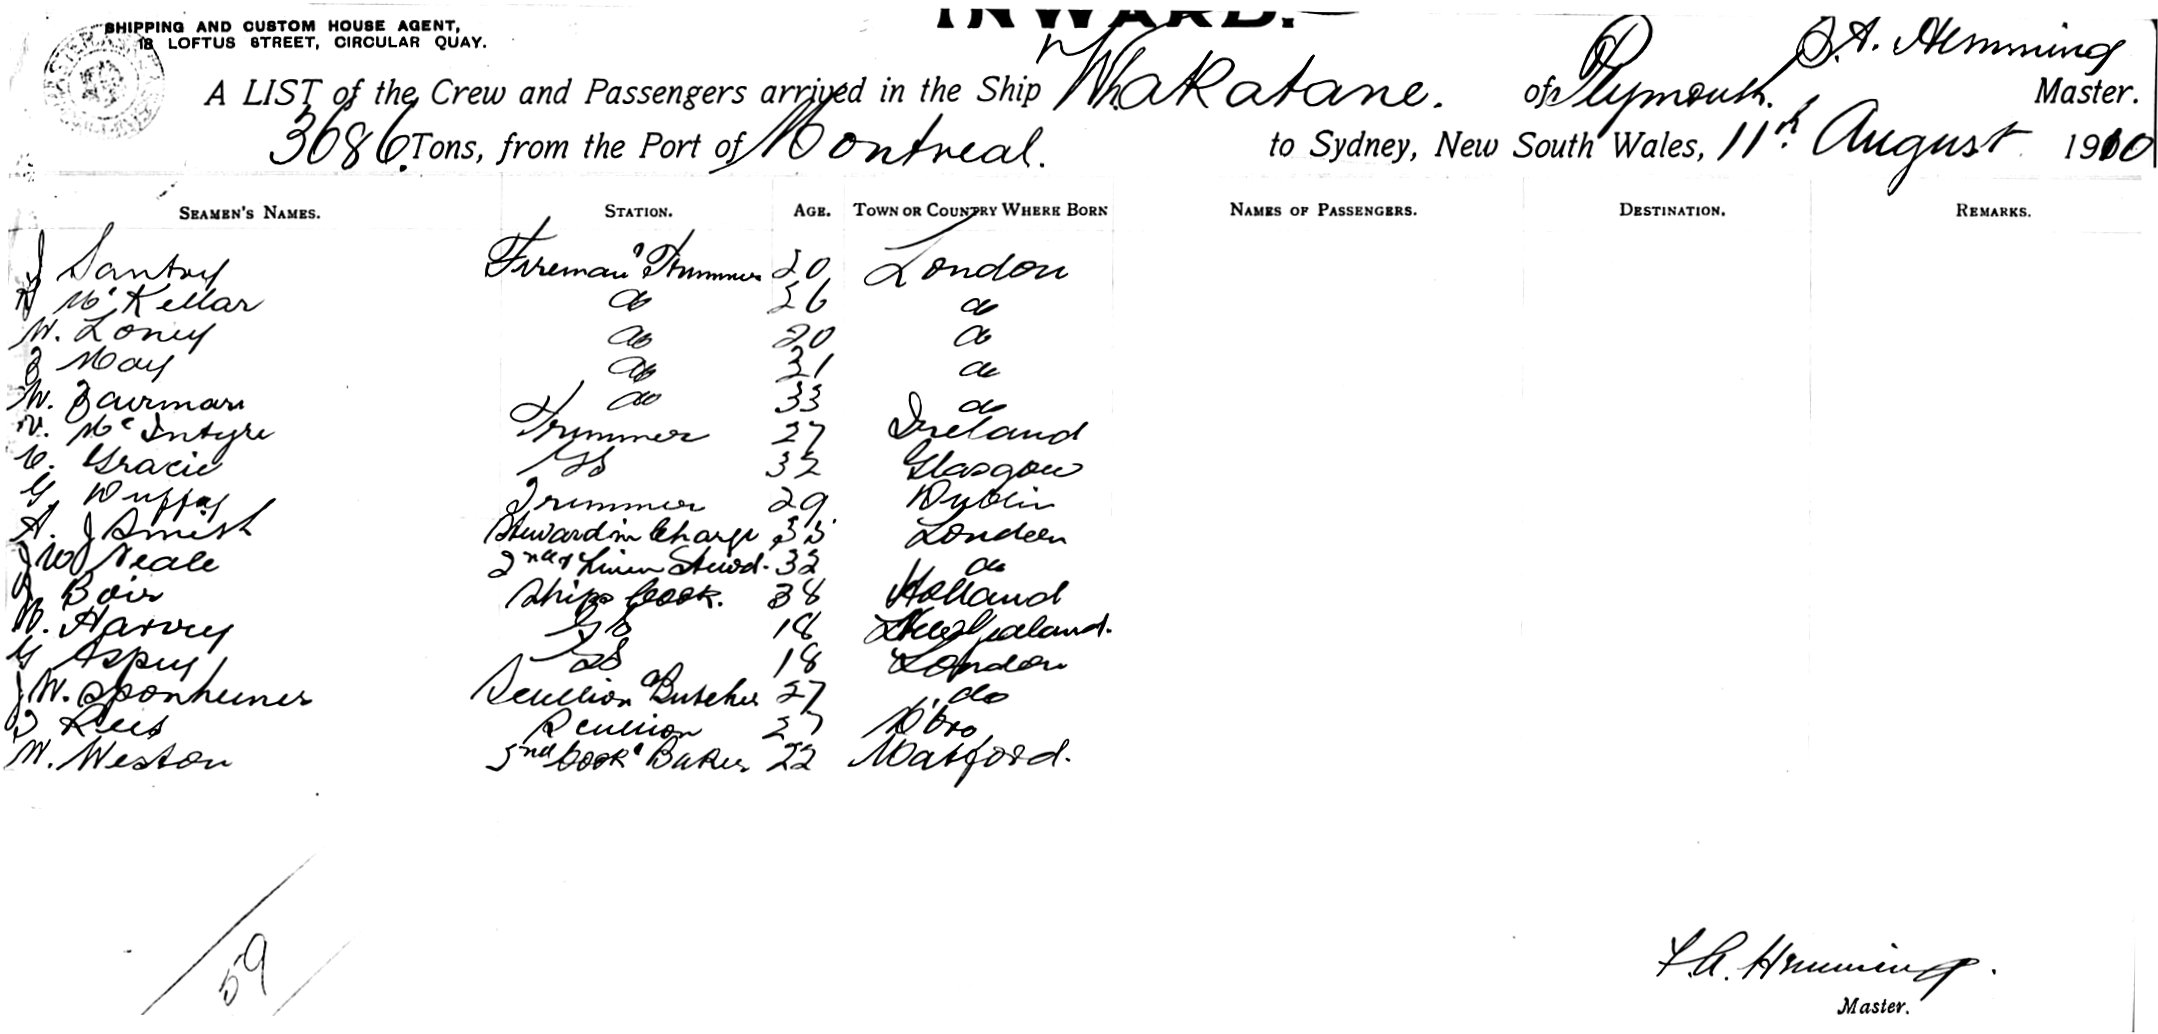 INWARD.
SHIPPING AND CUSTOM HOUSE AGENT,
18 LOFTUS STREET, CIRCULAR QUAY.
A. Hemming
A LIST of the Crew and Passengers arrived in the Ship Whakatane. of Plymouth. Master.
3686 Tons, from the Port of Montreal. to Sydney, New South Wales, 11th August 1910
SEAMEN'S NAMES. STATION. AGE. TOWN OR COUNTRY WHERE BORN NAMES OF PASSENGERS. DESTINATION. REMARKS.
J Santry Fireman & Trimmer 20 London
McKellar do 26 do
W. Loney do 20 do
May do 21 do
W. Fairman do 33 do
McIntyre Trimmer 27 Ireland
Gracie 32 Glasgow
G Duffy Trimmer 29 Dublin
A. J Smith Steward in Charge 33 London
J W Neale 2nd & Linen Stewd. 32 do
Boir Ships Cook. 38 Holland
W. Harvey 18 New Zealand.
G Aspey 18 London
J W. Sponheimer Scullion & Butcher 27 do
Rees Scullion 27
W. Weston 2nd Cook & Baker 22 Watford.
59
F. A. Hemming.
Master.